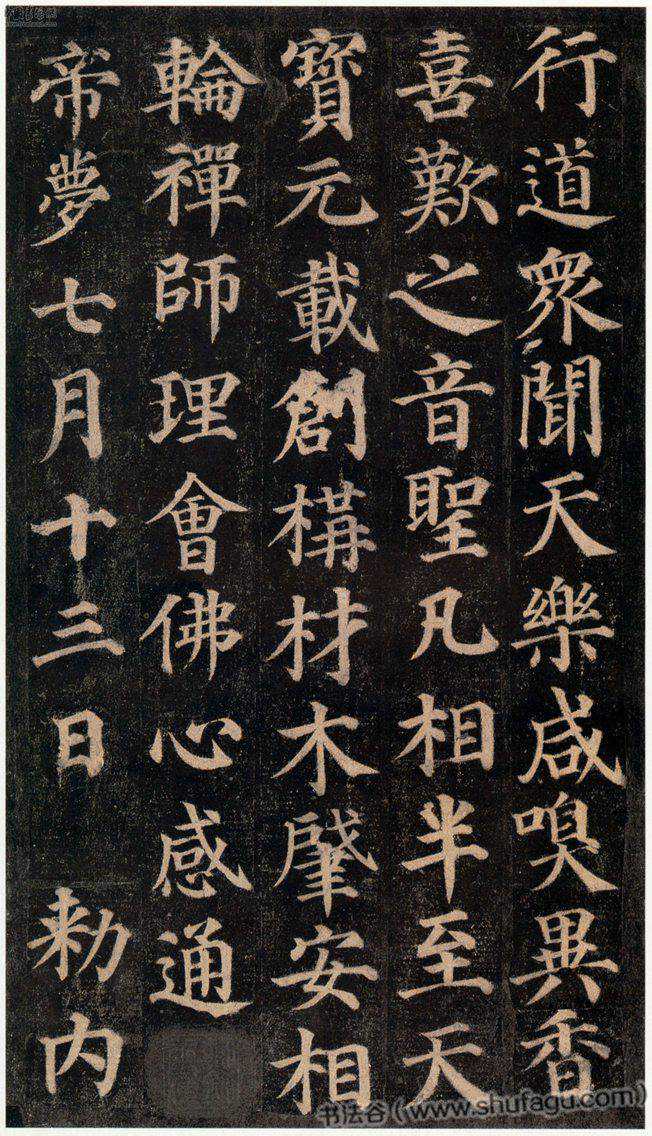 行道眾聞天樂咸嗅異香
喜歎之音聖凡相半至天
寶元載創構材木肇安相
輪禪師理會佛心感通
帝夢七月十三日 勑内
书法谷(www.shufagu.com)